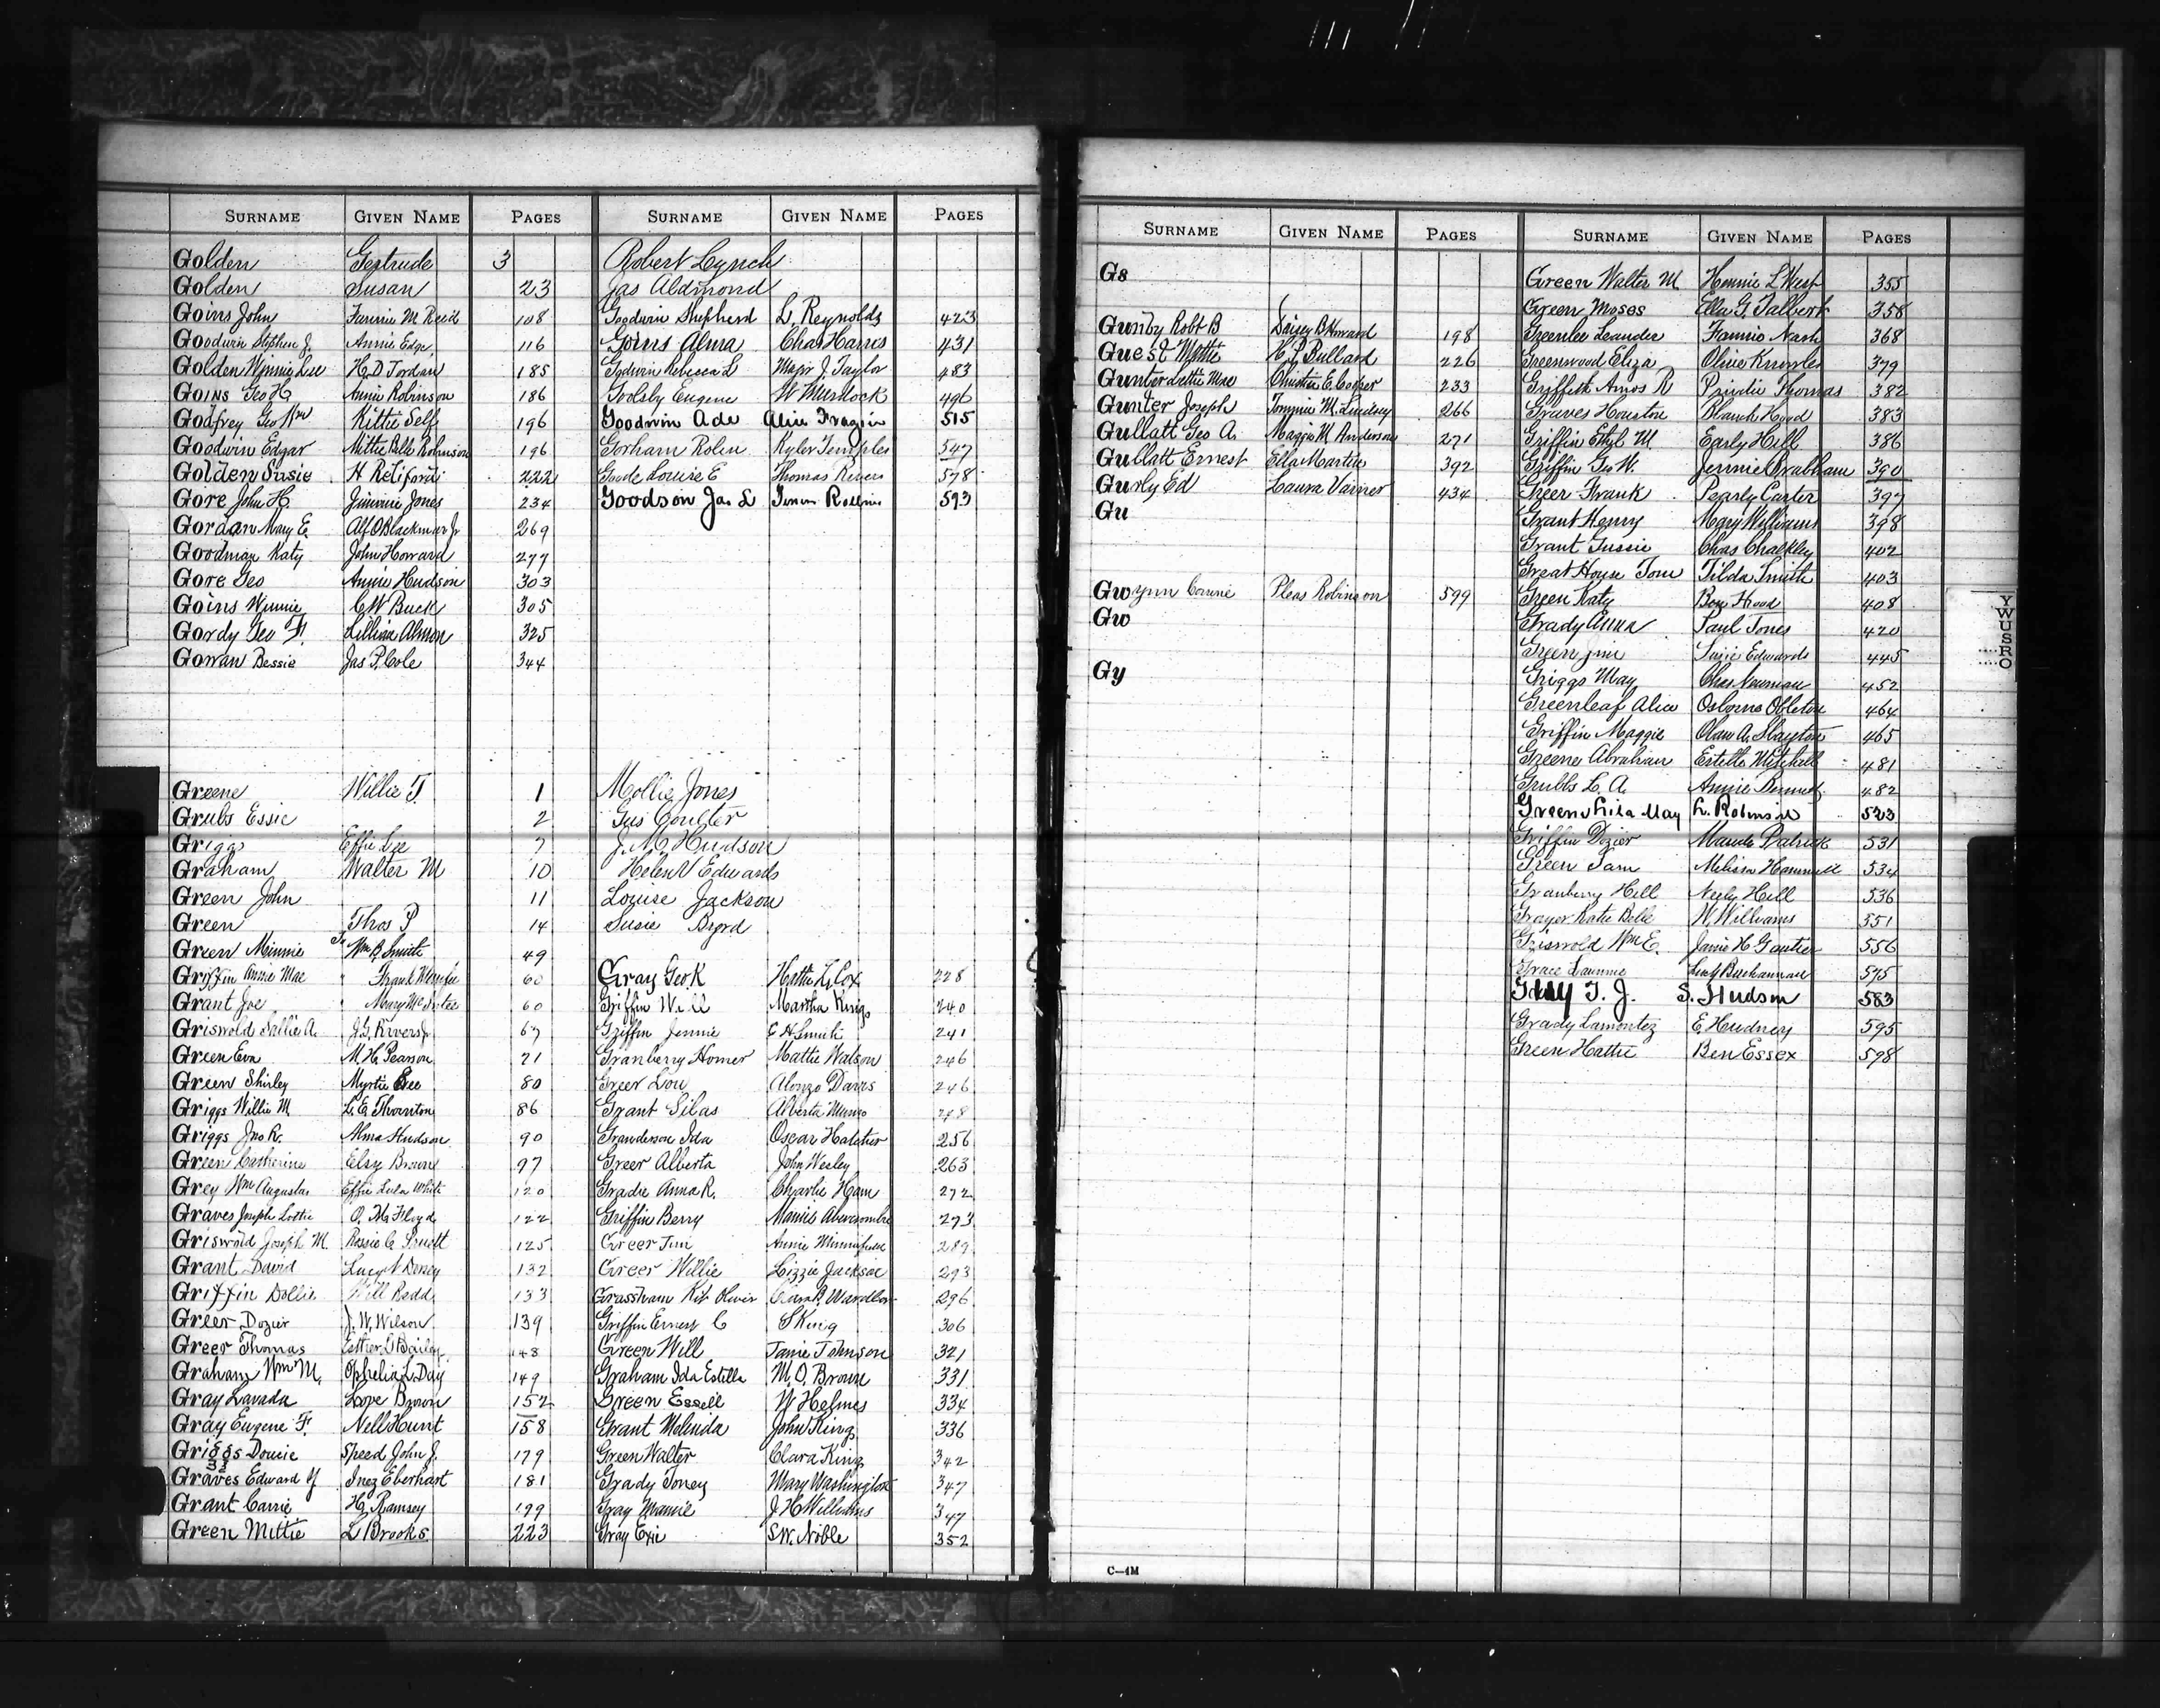 SURNAME GIVEN NAME PAGES SURNAME GIVEN NAME PAGES
Golden Gertrude 3 Robert Lynch
Golden Susan 23 Jas Aldmond
Goins John Fannie M Reid 108 Goodwin Shepherd L. Reynolds 423
Goodwin Stephen J. Annie Edge 116 Goins Alma Chas Harris 431
Golden Winnie Lee H. D. Jordan 185 Godwin Rebecca L Major J. Taylor 483
Goins Geo H. Annie Robinson 186 Golsby Eugene W Murdock 496
Godfrey Geo Wm Kittie Self 196 Goodwin Ade Alice 515
Goodwin Edgar Mittie Belle Robinson 196 Gorham Rolen Kyler Temples 547
Golden Susie H Reliford 222 Goode Louise E Thomas 578
Gore John H. Jimmie Jones 234 Goodson Jas L Rollins 593
Gordan Mary E. Alf O Blackmar Jr 269
Goodman Katy John Howard 277
Gore Geo Annie Hudson 303
Goins Winnie C W Buck 305
Gordy Geo F. Lillian Almon 325
Gowan Bessie Jas P. Cole 344
Greene Willie T 1 Mollie Jones
Grubs Essie 2 Gus Coulter
Griggs Effie Lee 7 J. M. Hudson
Graham Walter M 10 Helen V Edwards
Green John 11 Louise Jackson
Green Thos P 14 Susie Byrd
Green Minnie To Wm B. Smith 49
Griffin Annie Mae Frank 60 Gray Geo K Hattie L. Cox 228
Grant Joe Mary 60 Griffin Will Martha King 240
Griswold Sallie A. J. G. Rivers Jr 67 Griffin Jennie E H Smith 241
Green Eva M. H. Pearson 71 Granberry Homer Mattie Watson 246
Green Shirley Myrtie Gee 80 Greer Lou Alonzo Davis 246
Griggs Willie M. L. E. Thornton 86 Grant Silas Alberta 248
Griggs Jno R. Alma Hudson 90 Granderson Ida Oscar Hatcher 256
Green Catherine Elsy Brown 97 Greer Alberta John Wesley 263
Grey Wm Augustus Effie Lula White 120 Gradie Anna R. Charlie Ham 272
Graves Joseph Lottie O. M. Floyd 122 Griffin Berry Mamie Abercrombie 273
Griswold Joseph M. Rossie C. Pruett 125 Greer Jim Annie 289
Grant David Lucy 132 Greer Willie Lizzie Jackson 293
Griffin Dollie Will Redd 133 Grassham Kit Oliver 296
Greer Dozier J. W. Wilson 139 Griffin Ernest C S King 306
Greer Thomas Esther L Bailey 148 Green Will Janie Johnson 321
Graham Wm M. Ophelia L. Day 149 Graham Ida Estella M. O. Brown 331
Gray Lavada Love Brown 152 Green Essell W Helmes 334
Gray Eugene F. Nell Hunt 158 Grant Melinda John King 336
Griggs Doucie Speed John J. 179 Green Walter Clara King 342
Graves Edward Y Inez Eberhart 181 Grady Toney Mary Washington 347
Grant Carrie H. Ramsey 199 Gray Mamie J. H Williams 347
Green Mittie L Brooks 223 Gray Exie S.W. Noble 352
SURNAME GIVEN NAME PAGES SURNAME GIVEN NAME PAGES
Gs Green Walter M Hennie L West 355
Green Moses Ella G. Talbert 358
Gunby Robt B Daisey B Howard 198 Greenlee Leander Fannie Nash 368
Guest Mattie H. J. Bullard 226 Greenwood Eliza Olivie Knowles 379
Gunter Lettie Mae Christie E. Cooper 233 Griffeth Amos R Prindie Thomas 382
Gunter Joseph Tommie M. Lindsey 266 Graves Houston Blanch Hood 383
Gullatt Geo A. Maggie M Anderson 271 Griffin Ethyl M. Early Hill 386
Gullatt Ernest Ella Martin 392 Griffin Geo W. Jennie Brabham 390
Gurly Ed Laura Varner 434 Greer Frank Pearly Carter 397
Gu Grant Henry Mary Williams 398
Grant Tussie Chas Chalkley 402
Great House Tom Tilda Smith 403
Gwynn Corine Pleas Robinson 599 Green Katy Boy Hood 408
Gw Grady Anna Paul Jones 420
Green Jim Susie Edwards 445
Gy Griggs May Chas Newman 452
Greenleaf Alice Osborne 464
Griffin Maggie A. Slayton 465
Greene Abraham Estelle Mitchell 481
Grubbs L. A. Annie 482
Green Lila May L. Robinson 523
Griffin Dozier Maude Patrick 531
Green Sam Melissa 534
Granberry Hill Neely Hill 536
Grayer Katie Belle W. Williams 551
Griswold Wm E. Janie H. Gautier 556
Grace Lucy Buchannan 575
T. J. S. Hudson 583
Grady Lamontez E. Hudney 595
Green Hattie Ben Essex 598
YWUSRO
C—4M